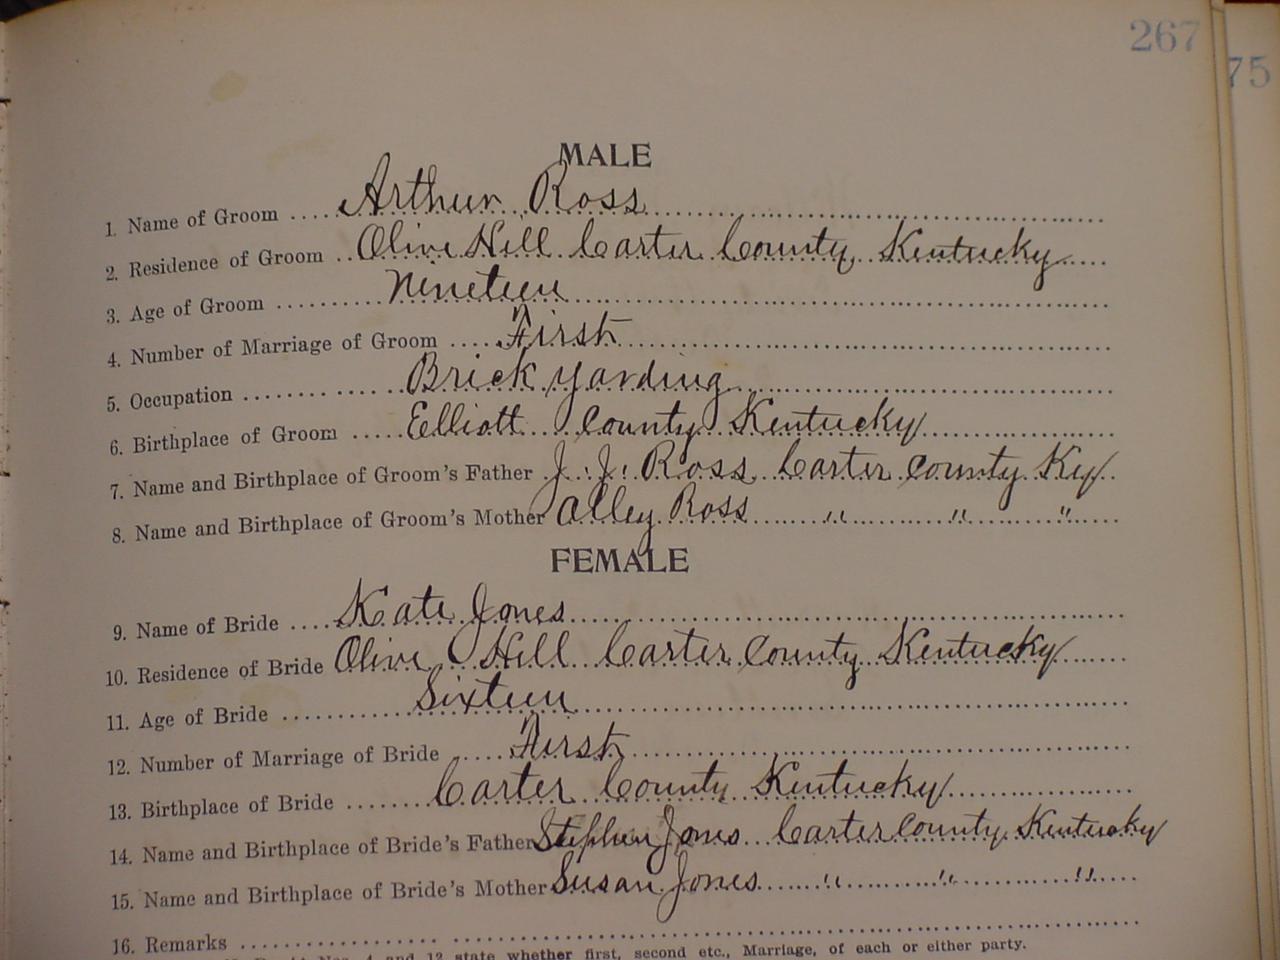 267
75
MALE
1. Name of Groom .... Arthur Ross
2. Residence of Groom .. Olive Hill Carter County, Kentucky
3. Age of Groom .......... Nineteen
4. Number of Marriage of Groom .... First
5. Occupation .......... Brick yarding
6. Birthplace of Groom ..... Elliott County Kentucky
7. Name and Birthplace of Groom's Father J. J. Ross Carter County Ky
8. Name and Birthplace of Groom's Mother Alley Ross " " "
FEMALE
9. Name of Bride .... Kate Jones
10. Residence of Bride Olive Hill Carter County Kentucky
11. Age of Bride .......... Sixteen
12. Number of Marriage of Bride .... First
13. Birthplace of Bride ...... Carter County Kentucky
14. Name and Birthplace of Bride's Father Stephen Jones Carter County, Kentucky
15. Name and Birthplace of Bride's Mother Susan Jones " " "
16. Remarks ..........
Nos. 4 and 12 state whether first, second etc., Marriage, of each or either party.